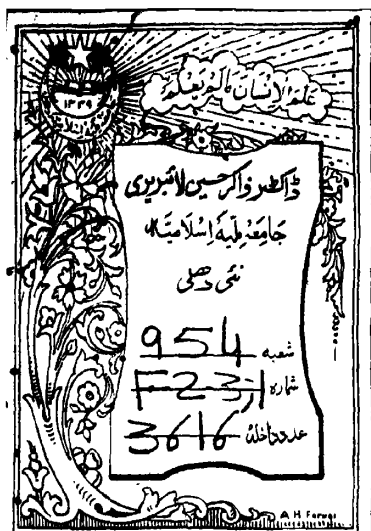 علم الإنسان ما لم يعلم
۱۳۳۹
ڈاکٹر ذاکر حسین لائبریری
جامعہ ملیہ اسلامیہ
نئی دھلی
شعبہ 954
شمارہ
عدد داخلہ 3616
A H Faruqi